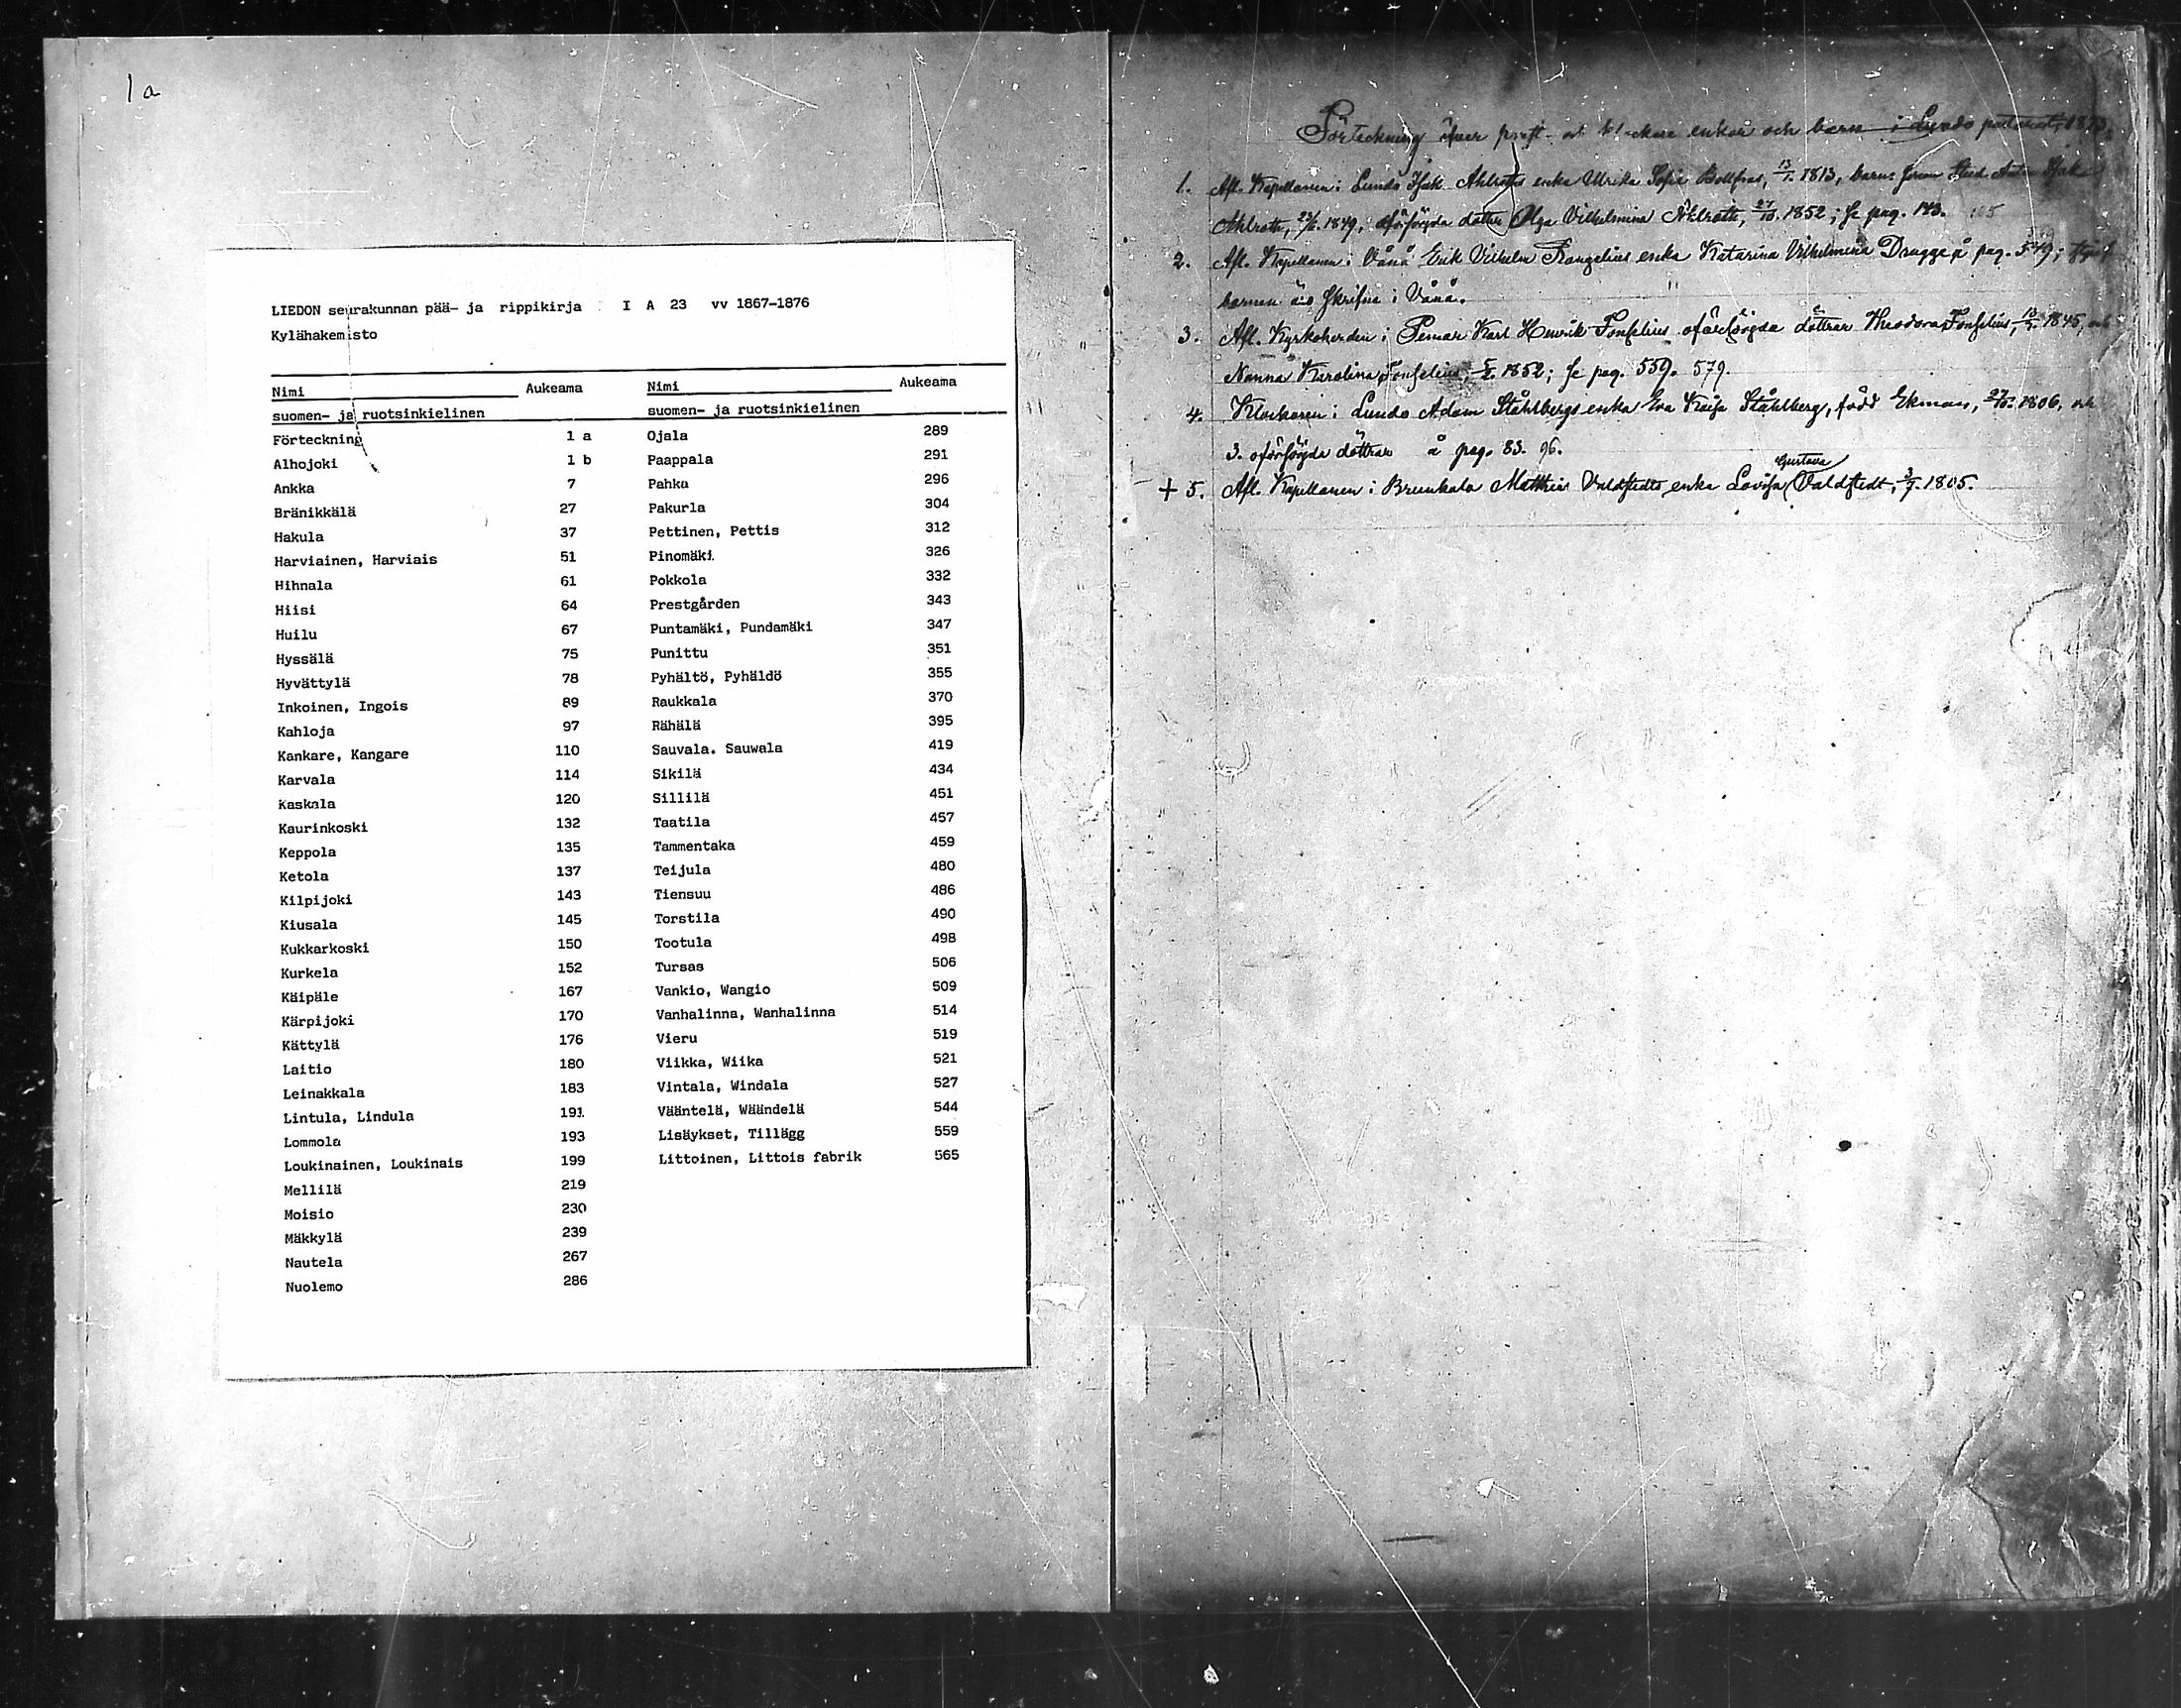 1 a
LIEDON seurakunnan pää- ja rippikirja I A 23 vv 1867-1876
Kylähakemisto
Nimi Aukeama Nimi Aukeama
suomen- ja ruotsinkielinen suomen- ja ruotsinkielinen
Förteckning 1 a Ojala 289
Alhojoki 1 b Paappala 291
Ankka 7 Pahka 296
Bränikkälä 27 Pakurla 304
Hakula 37 Pettinen, Pettis 312
Harviainen, Harviais 51 Pinomäki 326
Hihnala 61 Pokkola 332
Hiisi 64 Prestgården 343
Huilu 67 Puntamäki, Pundamäki 347
Hyssälä 75 Punittu 351
Hyvättylä 78 Pyhältö, Pyhäldö 355
Inkoinen, Ingois 89 Raukkala 370
Kahloja 97 Rähälä 395
Kankare, Kangare 110 Sauvala. Sauwala 419
Karvala 114 Sikilä 434
Kaskala 120 Sillilä 451
Kaurinkoski 132 Taatila 457
Keppola 135 Tammentaka 459
Ketola 137 Teijula 480
Kilpijoki 143 Tiensuu 486
Kiusala 145 Torstila 490
Kukkarkoski 150 Tootula 498
Kurkela 152 Tursas 506
Käipäle 167 Vankio, Wangio 509
Kärpijoki 170 Vanhalinna, Wanhalinna 514
Kättylä 176 Vieru 519
Laitio 180 Viikka, Wiika 521
Leinakkala 183 Vintala, Windala 527
Lintula, Lindula 191 Vääntelä, Wäändelä 544
Lommola 193 Lisäykset, Tillägg 559
Loukinainen, Loukinais 199 Littoinen, Littois fabrik 565
Mellilä 219
Moisio 230
Mäkkylä 239
Nautela 267
Nuolemo 286
Förteckning öfver prest- och klockare enkor och barn i Lundo pastorat, 1873
1. Afl. Kapellanen i Lundo Isak Ahlroths enka Ulrika Sofia 13/1. 1813, barn: sonen Stud. Isak
Ahlroth, 1849, oförsörjda dottern Olga Vilhelmina Ahlroth, 27/10. 1852; se pag. 143. 165
2. Afl. Kapellanen i Vånå Erik Vilhelm Rangelius enka Katarina Vilhelmina Drugge å pag. 549;
barnen äro skrifna i Vånå.
3. Afl. Kyrkoherden i Pemar Karl Henrik Fonselius oförsörjda döttrar Theodora Fonselius, 1845, och
Nanna Karolina Fonselius, 1852; se pag. 559. 579.
4. Klockaren i Lundo Adam Ståhlbergs enka Eva Kaisa Ståhlberg, född Ekman, 1806, och
3. oförsörjda döttrar å pag. 83. 96.
Gustava
+ 5. Afl. Kapellanen i Brunkala Matthias Valdstedts enka Lovisa Valdstedt, 3/7. 1805.